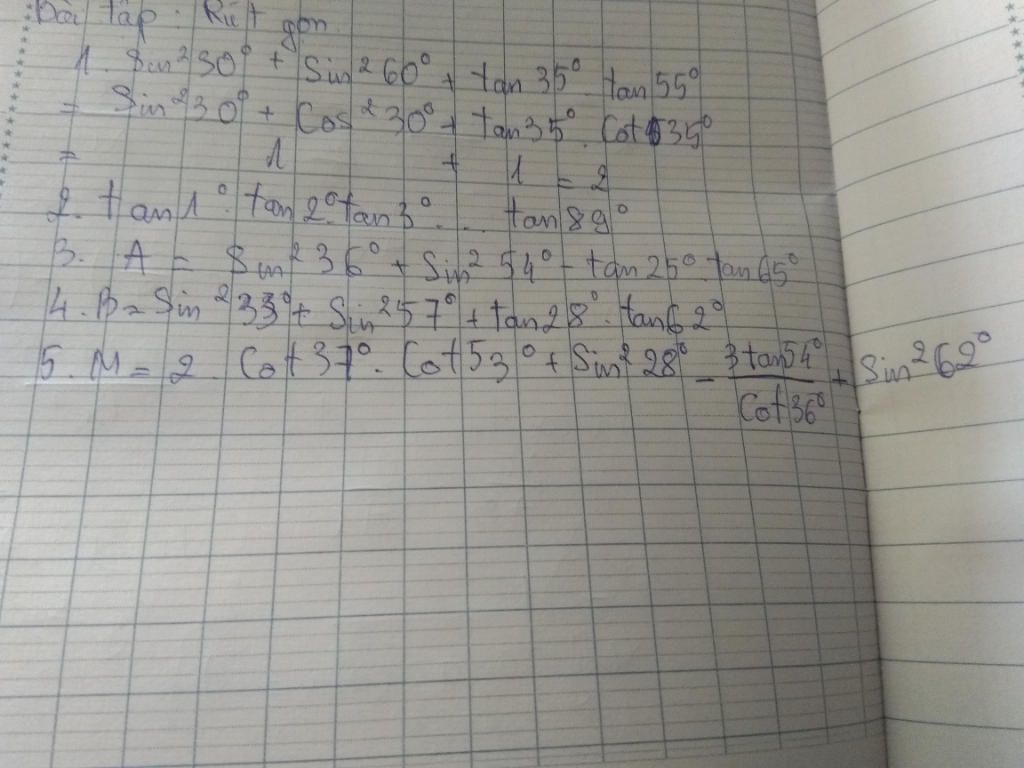 Bài tập: Rút gọn.
1. Sin²30° + Sin²60° + tan35°. tan55°
= Sin²30° + Cos²30° + tan35°. Cot35°
= 1 + 1 = 2
2. tan1°. tan2°. tan3° .... tan89°
3. A = Sin²36° + Sin²54° - tan25°. tan65°
4. B = Sin²33° + Sin²57° + tan28°. tan62°
5. M = 2. Cot37°. Cot53° + Sin²28° - 3tan54°/Cot36° + Sin²62°